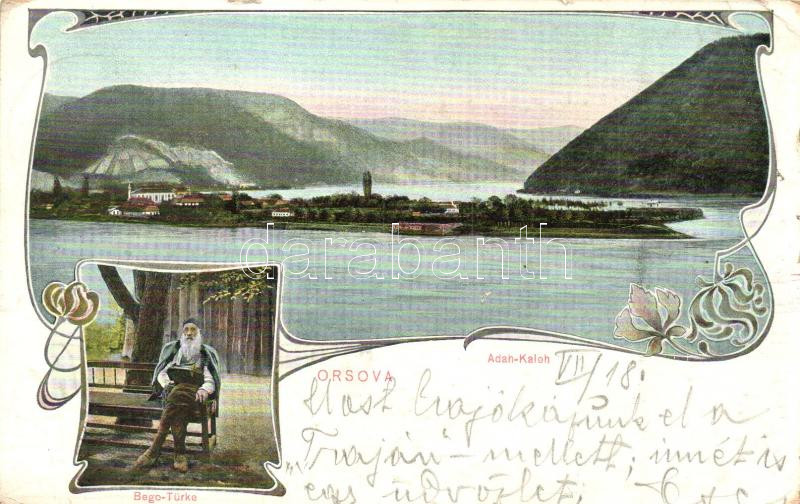 darabanth
ORSOVA
Adah-Kaleh
VIII/18.
Most hajókázunk el a
"Traján"-mellett, innét is
egy üdvözlet;
Bego-Türke